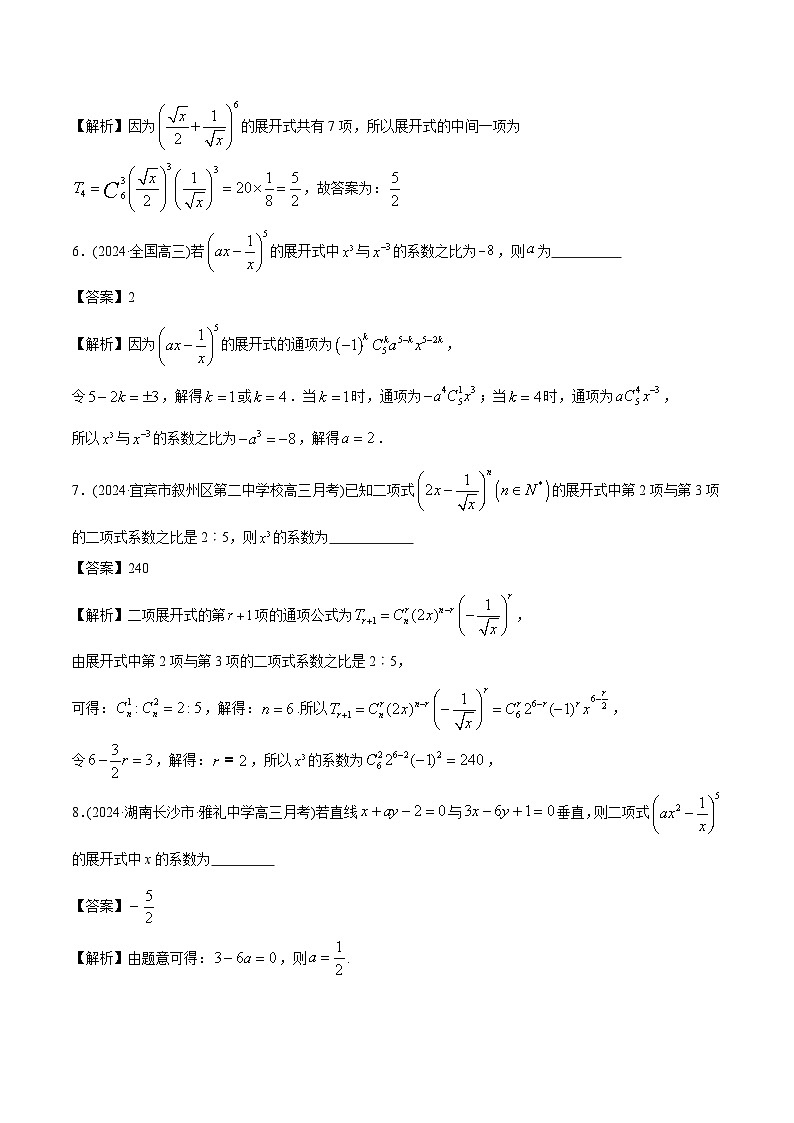 【解析】因为(√x/2+1/√x)^6的展开式共有7项，所以展开式的中间一项为
T_4=C_6^3(√x/2)^3(1/√x)^3=20×1/8=5/2，故答案为：5/2
6．(2024·全国高三)若(ax−1/x)^5的展开式中x^3与x^{−3}的系数之比为−8，则a为__________
【答案】2
【解析】因为(ax−1/x)^5的展开式的通项为(−1)^k C_5^k a^{5−k} x^{5−2k}，
令5−2k=±3，解得k=1或k=4．当k=1时，通项为−a^4C_5^1x^3；当k=4时，通项为aC_5^4x^{−3}，
所以x^3与x^{−3}的系数之比为−a^3=−8，解得a=2．
7．(2024·宜宾市叙州区第二中学校高三月考)已知二项式(2x−1/√x)^n(n∈N^*)的展开式中第2项与第3项
的二项式系数之比是2︰5，则x^3的系数为____________
【答案】240
【解析】二项展开式的第r+1项的通项公式为T_{r+1}=C_n^r(2x)^{n−r}(−1/√x)^r，
由展开式中第2项与第3项的二项式系数之比是2︰5，
可得：C_n^1:C_n^2=2:5，解得：n=6.所以T_{r+1}=C_n^r(2x)^{n−r}(−1/√x)^r=C_6^r2^{6−r}(−1)^r x^{6−r/2}，
令6−3/2r=3，解得：r=2，所以x^3的系数为C_6^2 2^{6−2}(−1)^2=240，
8.(2024·湖南长沙市·雅礼中学高三月考)若直线x+ay−2=0与3x−6y+1=0垂直,则二项式(ax^2−1/x)^5
的展开式中x的系数为_________
【答案】−5/2
【解析】由题意可得：3−6a=0，则a=1/2.